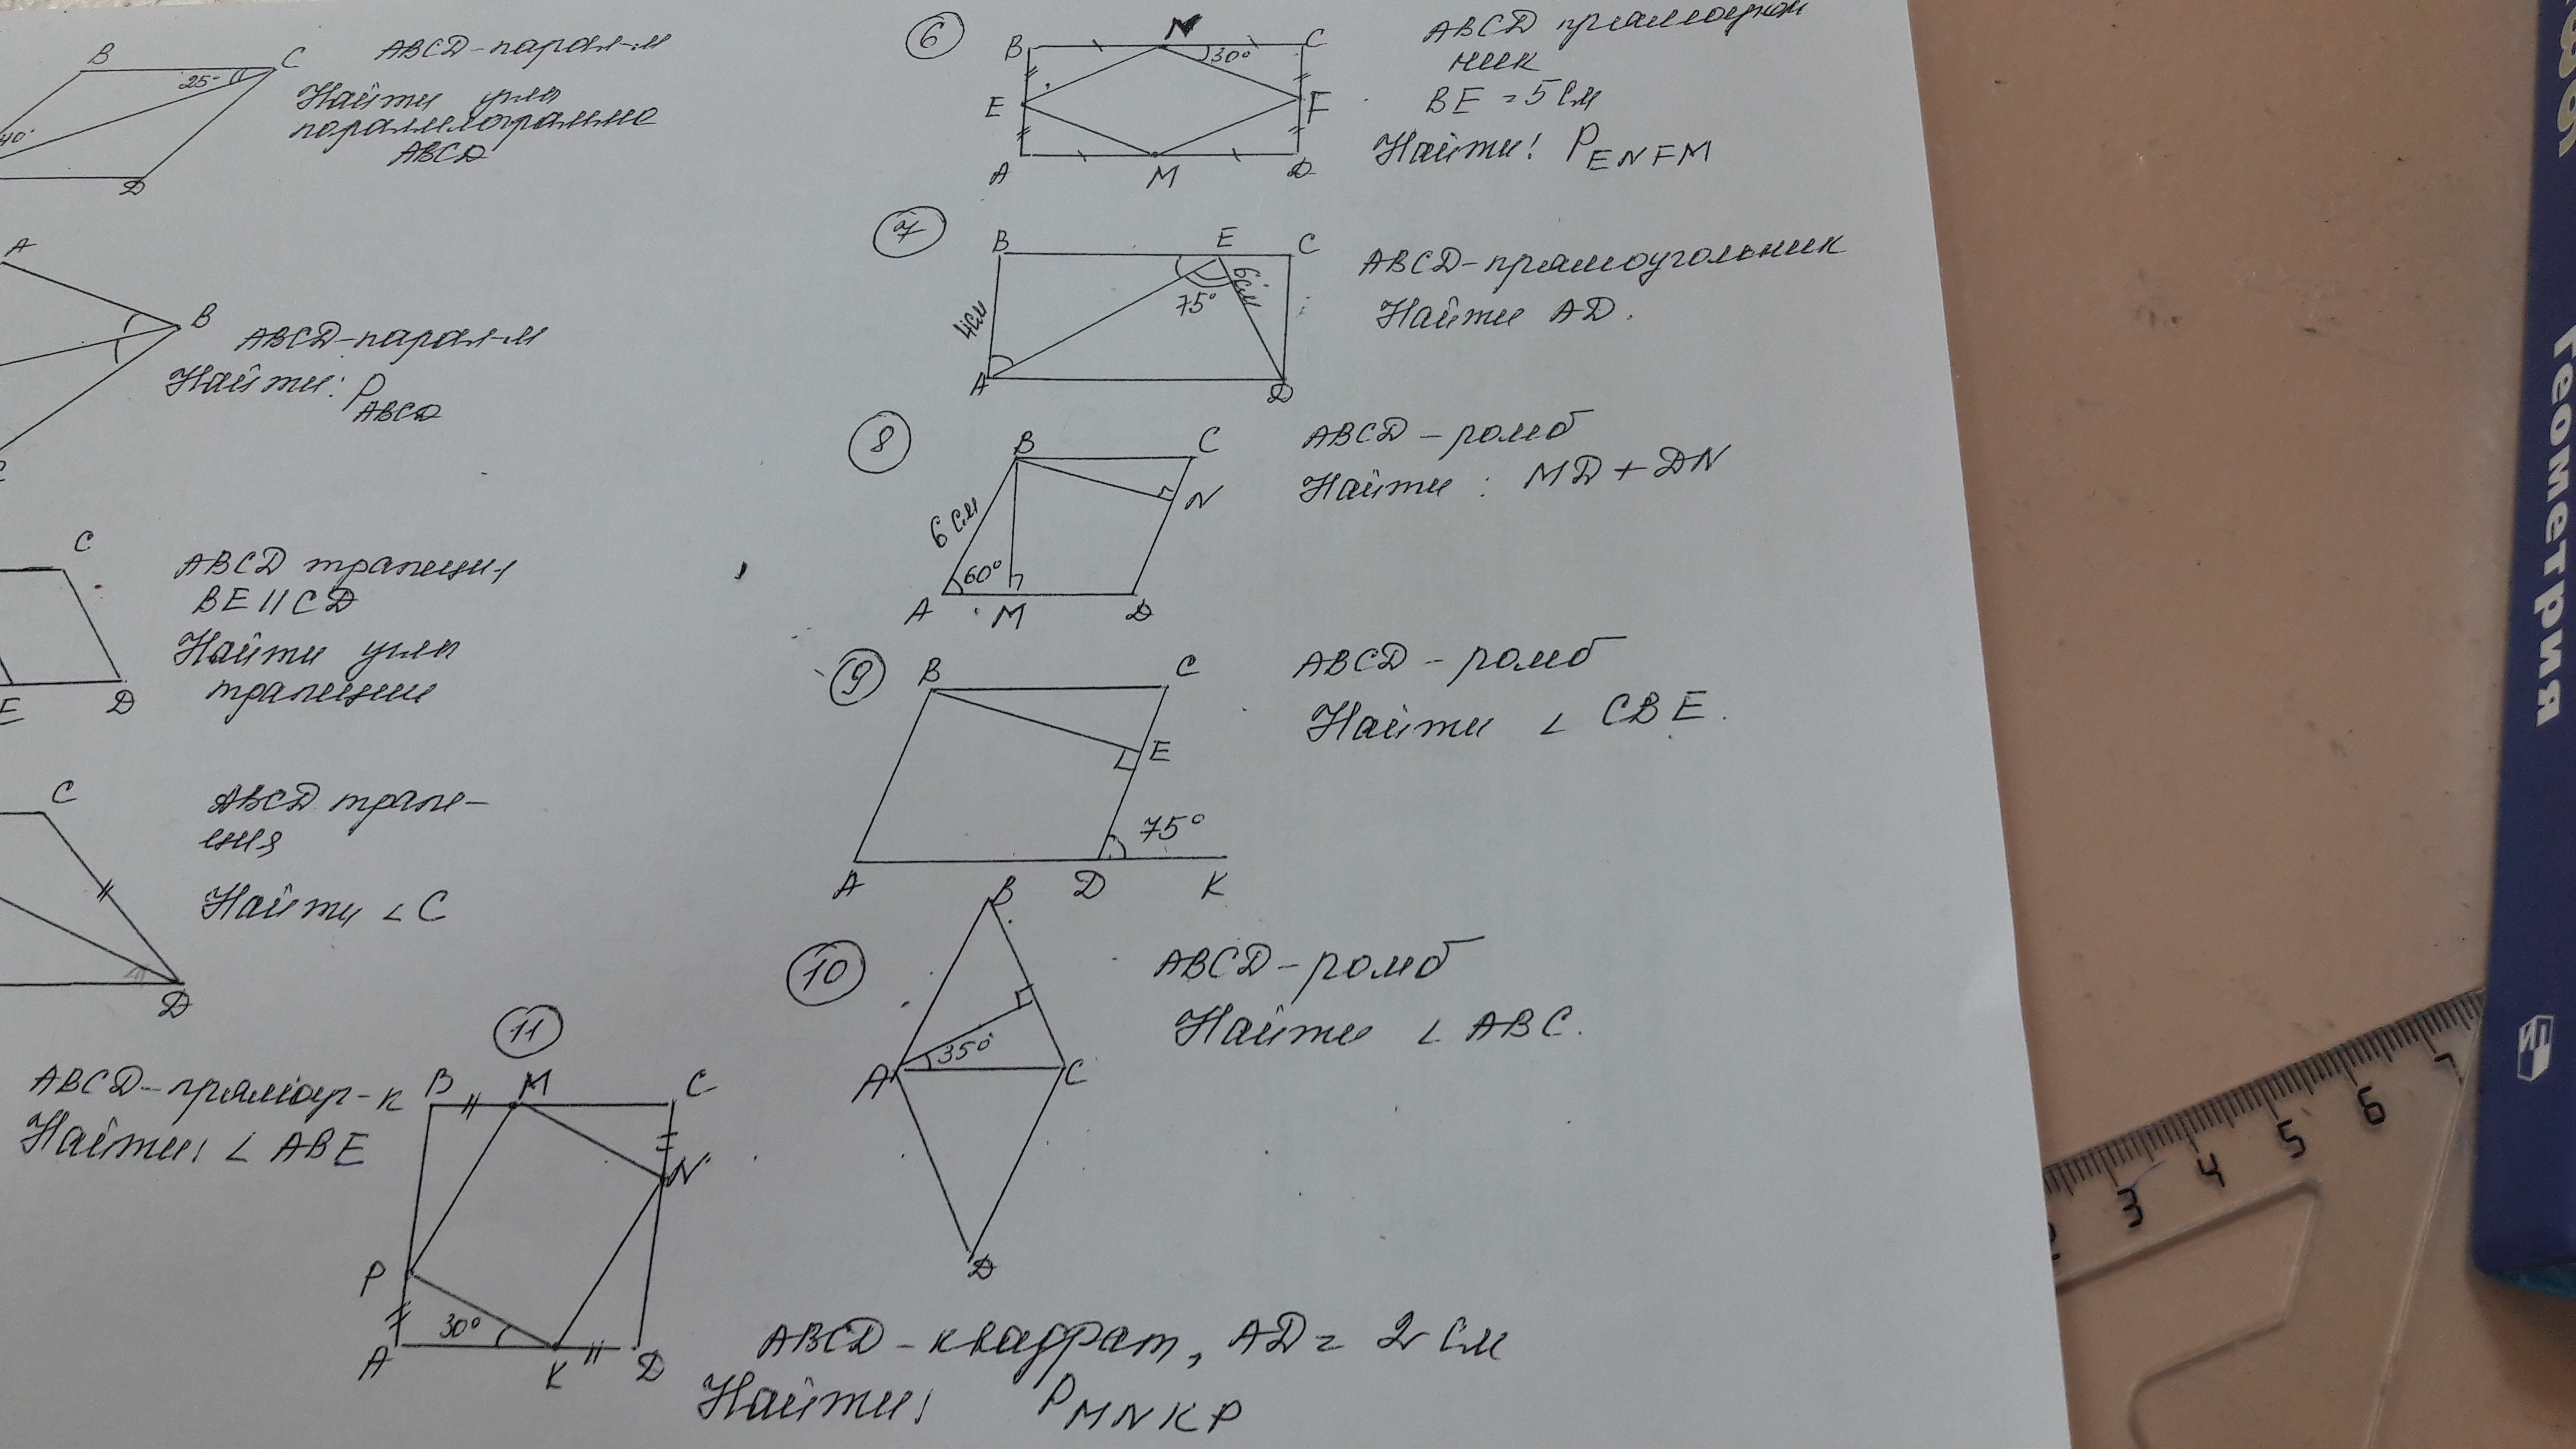 B
C
25°
40°
D
ABCD-парал-м
Найти углы
ABCD
A
B
ABCD-парал-м
Найти: P
ABCD
C
C
E
D
ABCD трапеция
BE || CD
Найти углы
трапеции
C
D
ABCD трапе-
ция
Найти ∠C
ABCD-прямоуг-к
Найти: ∠ABE
11
B
M
C
N
P
30°
A
K
D
ABCD-квадрат, AD = 2 см
Найти: P MNKP
6
B
N
C
30°
E
F
A
M
D
ник
BE = 5 см
Найти! P ENFM
7
B
E
C
4см
75°
6см
A
D
ABCD-прямоугольник
Найти AD.
8
B
C
6 см
N
60°
A
M
D
ABCD - ромб
Найти: MD + DN
9
B
C
E
75°
A
D
K
ABCD - ромб
Найти ∠ CBE.
10
B
35°
A
C
D
ABCD-ромб
Найти ∠ ABC.
Геометрия
3
4
5
6
7